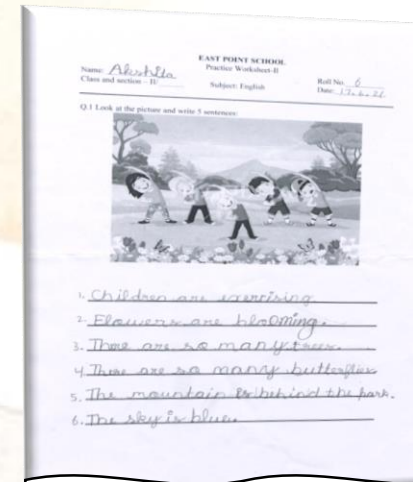 EAST POINT SCHOOL
Practice Worksheet-II
Name: Akshita
Roll No. 6
Class and section – II/
Subject: English
Date: 17.6.26
Q.1 Look at the picture and write 5 sentences:
1. Children are exercising
2. Flowers are blooming.
3. There are so many trees.
4. There are so many butterflies
5. The mountain is behind the park.
6. The sky is blue.